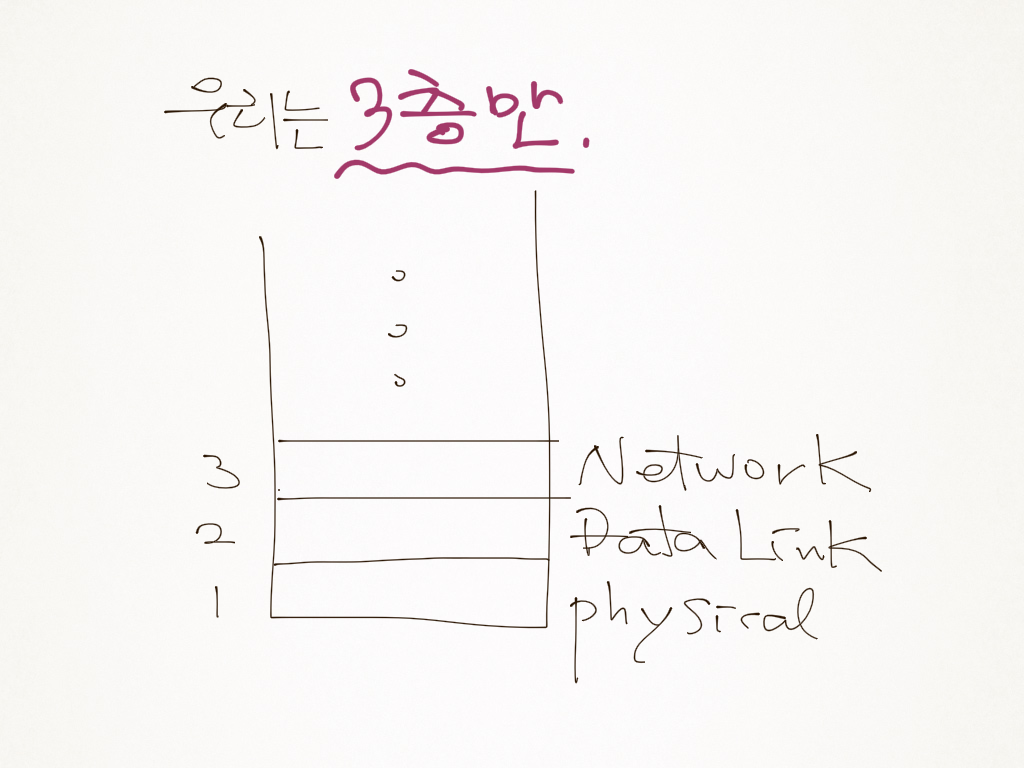 우리는 3층만.
3 Network
2 Data Link
1 physical